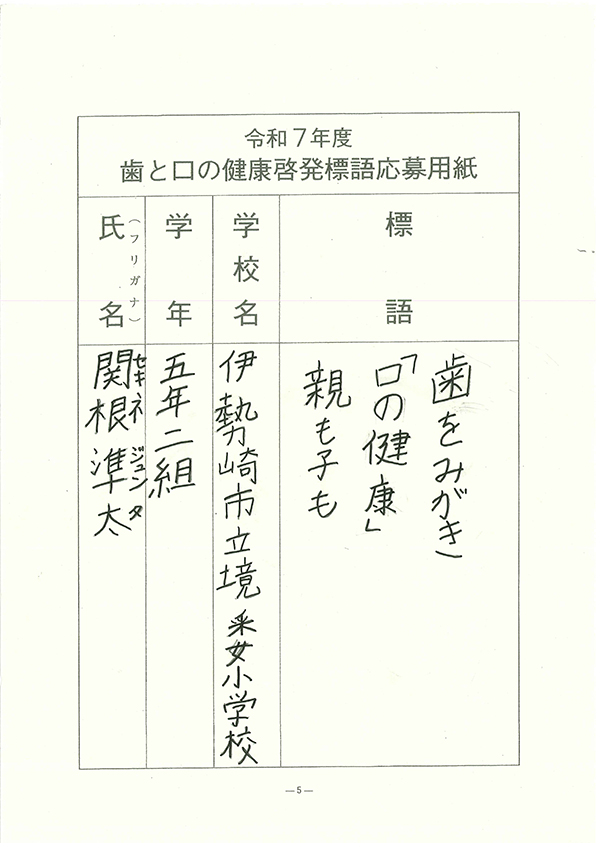 令和7年度
歯と口の健康啓発標語応募用紙
標語
歯をみがき
「口の健康」
親も子も
学校名
伊勢崎市立境采女小学校
学年
五年二組
氏名
(フリガナ)
関根準太
セキネ ジュンタ
—5—